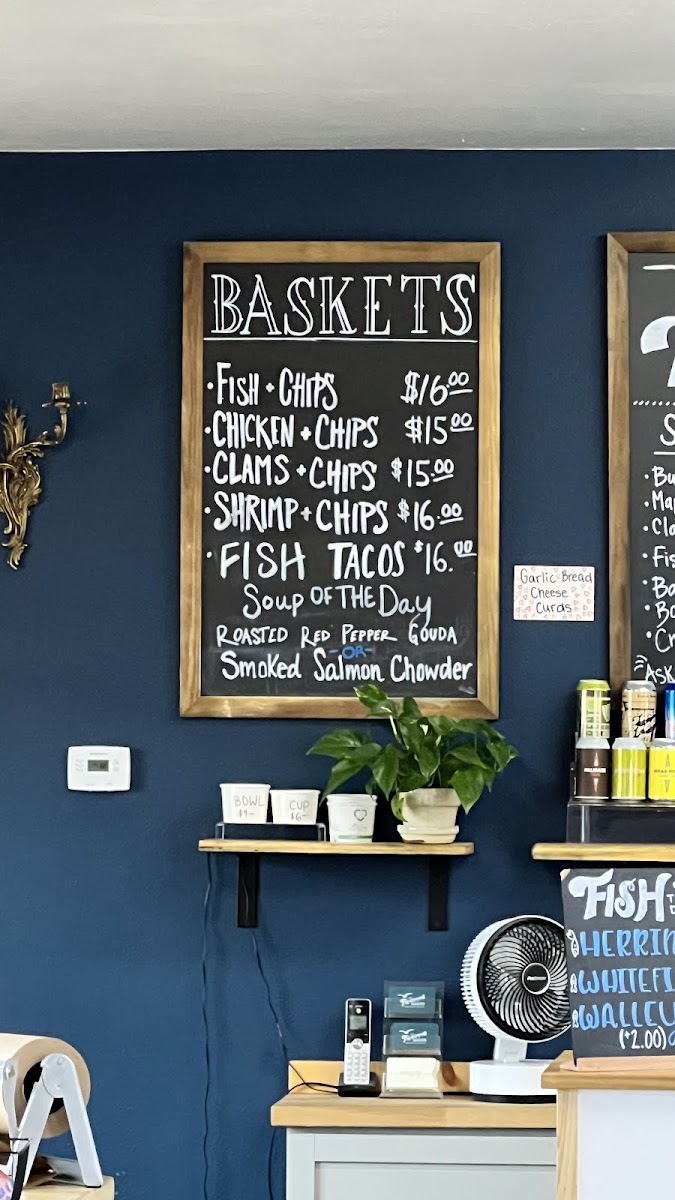 BASKETS
• FISH + CHIPS $16.00
• CHICKEN + CHIPS $15.00
• CLAMS + CHIPS $15.00
• SHRIMP + CHIPS $16.00
• FISH TACOS $16.00
Soup OF THE Day
ROASTED RED PEPPER GOUDA
-OR-
Smoked Salmon Chowder
Garlic Bread
Cheese
Curds
BOWL
$9-
CUP
$6-
FISH
HERRIN
WHITEFI
WALLEY
(+2.00)
• Bu
• Ma
• Cla
• Fis
• Ba
• Bo
• Cr
Ask